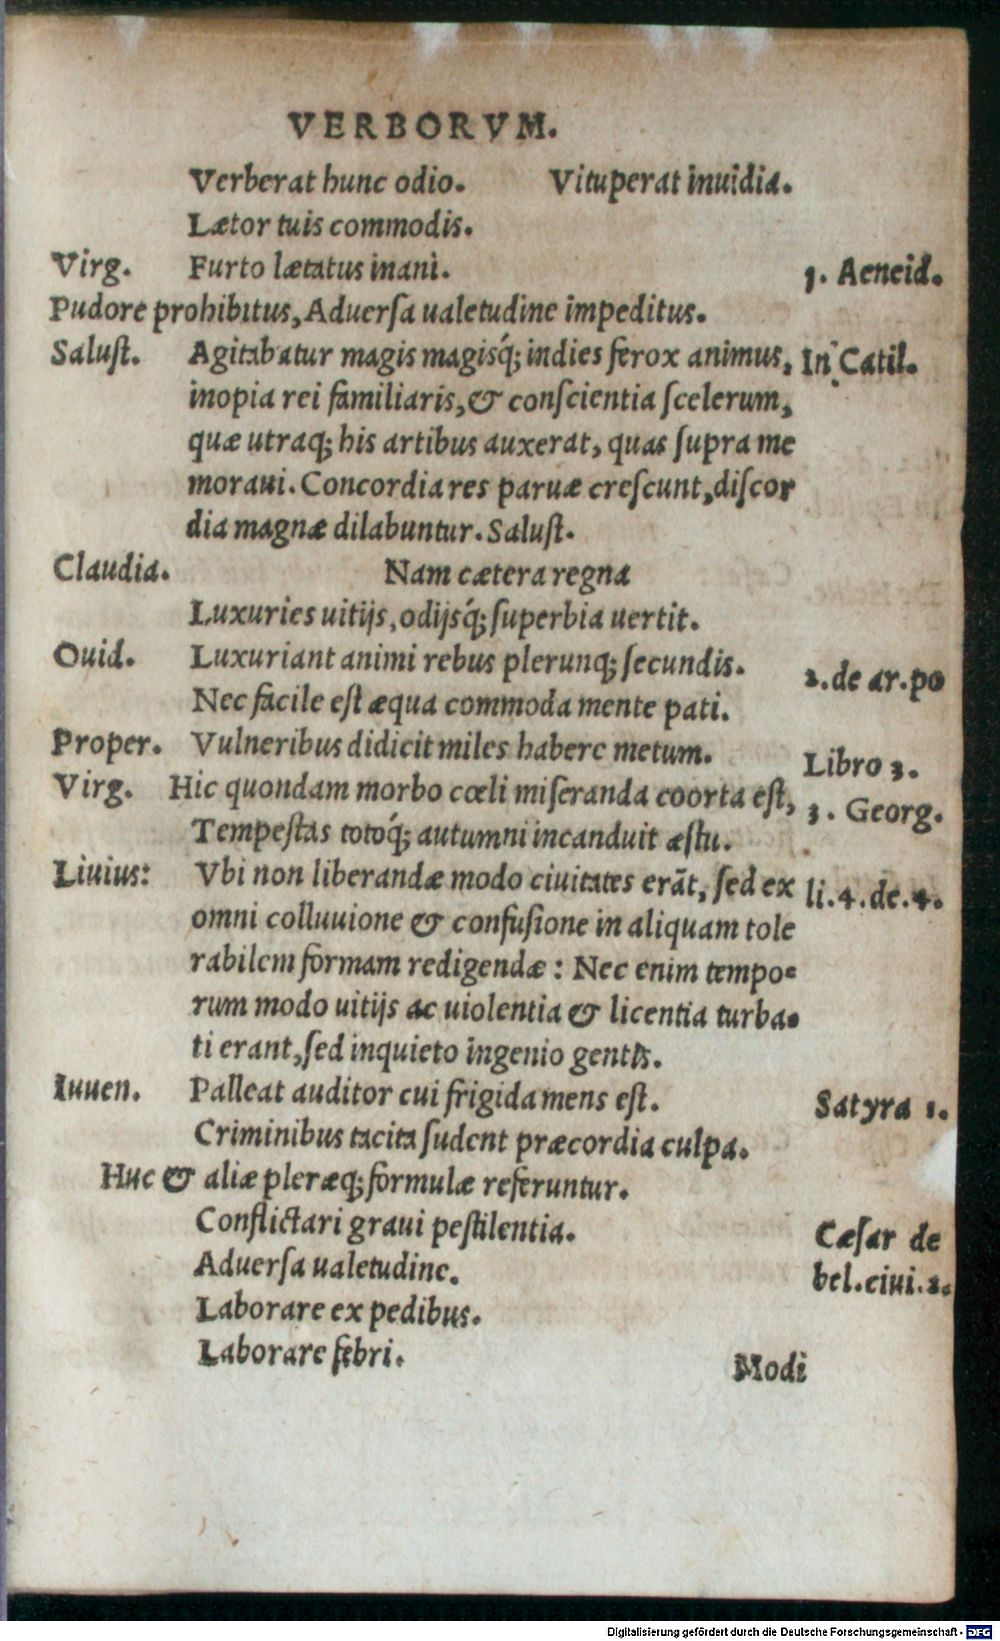 VERBORVM.
Verberat hunc odio. Vituperat inuidia.
Lætor tuis commodis.
Virg. Furto lætatus inani. Aeneid.
Pudore prohibitus, Aduerſa ualetudine impeditus.
Saluſt. Agitabatur magis magisq́; indies ferox animus, In Catil.
inopia rei familiaris, & conſcientia ſcelerum,
quæ utraq; his artibus auxerat, quas ſupra me
moraui. Concordia res paruæ creſcunt, diſcor
dia magnæ dilabuntur. Saluſt.
Claudia. Nam cætera regna
Luxuries uitijs, odijsq́; ſuperbia uertit.
Ouid. Luxuriant animi rebus plerunq; ſecundis. 2. de ar. po
Nec facile eſt æqua commoda mente pati.
Proper. Vulneribus didicit miles habere metum. Libro 3.
Virg. Hic quondam morbo cœli miſeranda coorta eſt, 3. Georg.
Tempeſtas totoq́; autumni incanduit æſtu.
Liuius: Vbi non liberandæ modo ciuitates erãt, ſed ex li. 4. de. 4.
omni colluuione & confuſione in aliquam tole
rabilem formam redigendæ: Nec enim tempo-
rum modo uitijs ac uiolentia & licentia turba-
ti erant, ſed inquieto ingenio gentis.
Iuuen. Palleat auditor cui frigida mens eſt. Satyra 1.
Criminibus tacita ſudent præcordia culpa.
Huc & aliæ pleræq; formulæ referuntur.
Conflictari graui peſtilentia. Cæſar de
Aduerſa ualetudine. bel. ciui. 2.
Laborare ex pedibus.
Laborare febri.
Modi
Digitalisierung gefördert durch die Deutsche Forschungsgemeinschaft - DFG